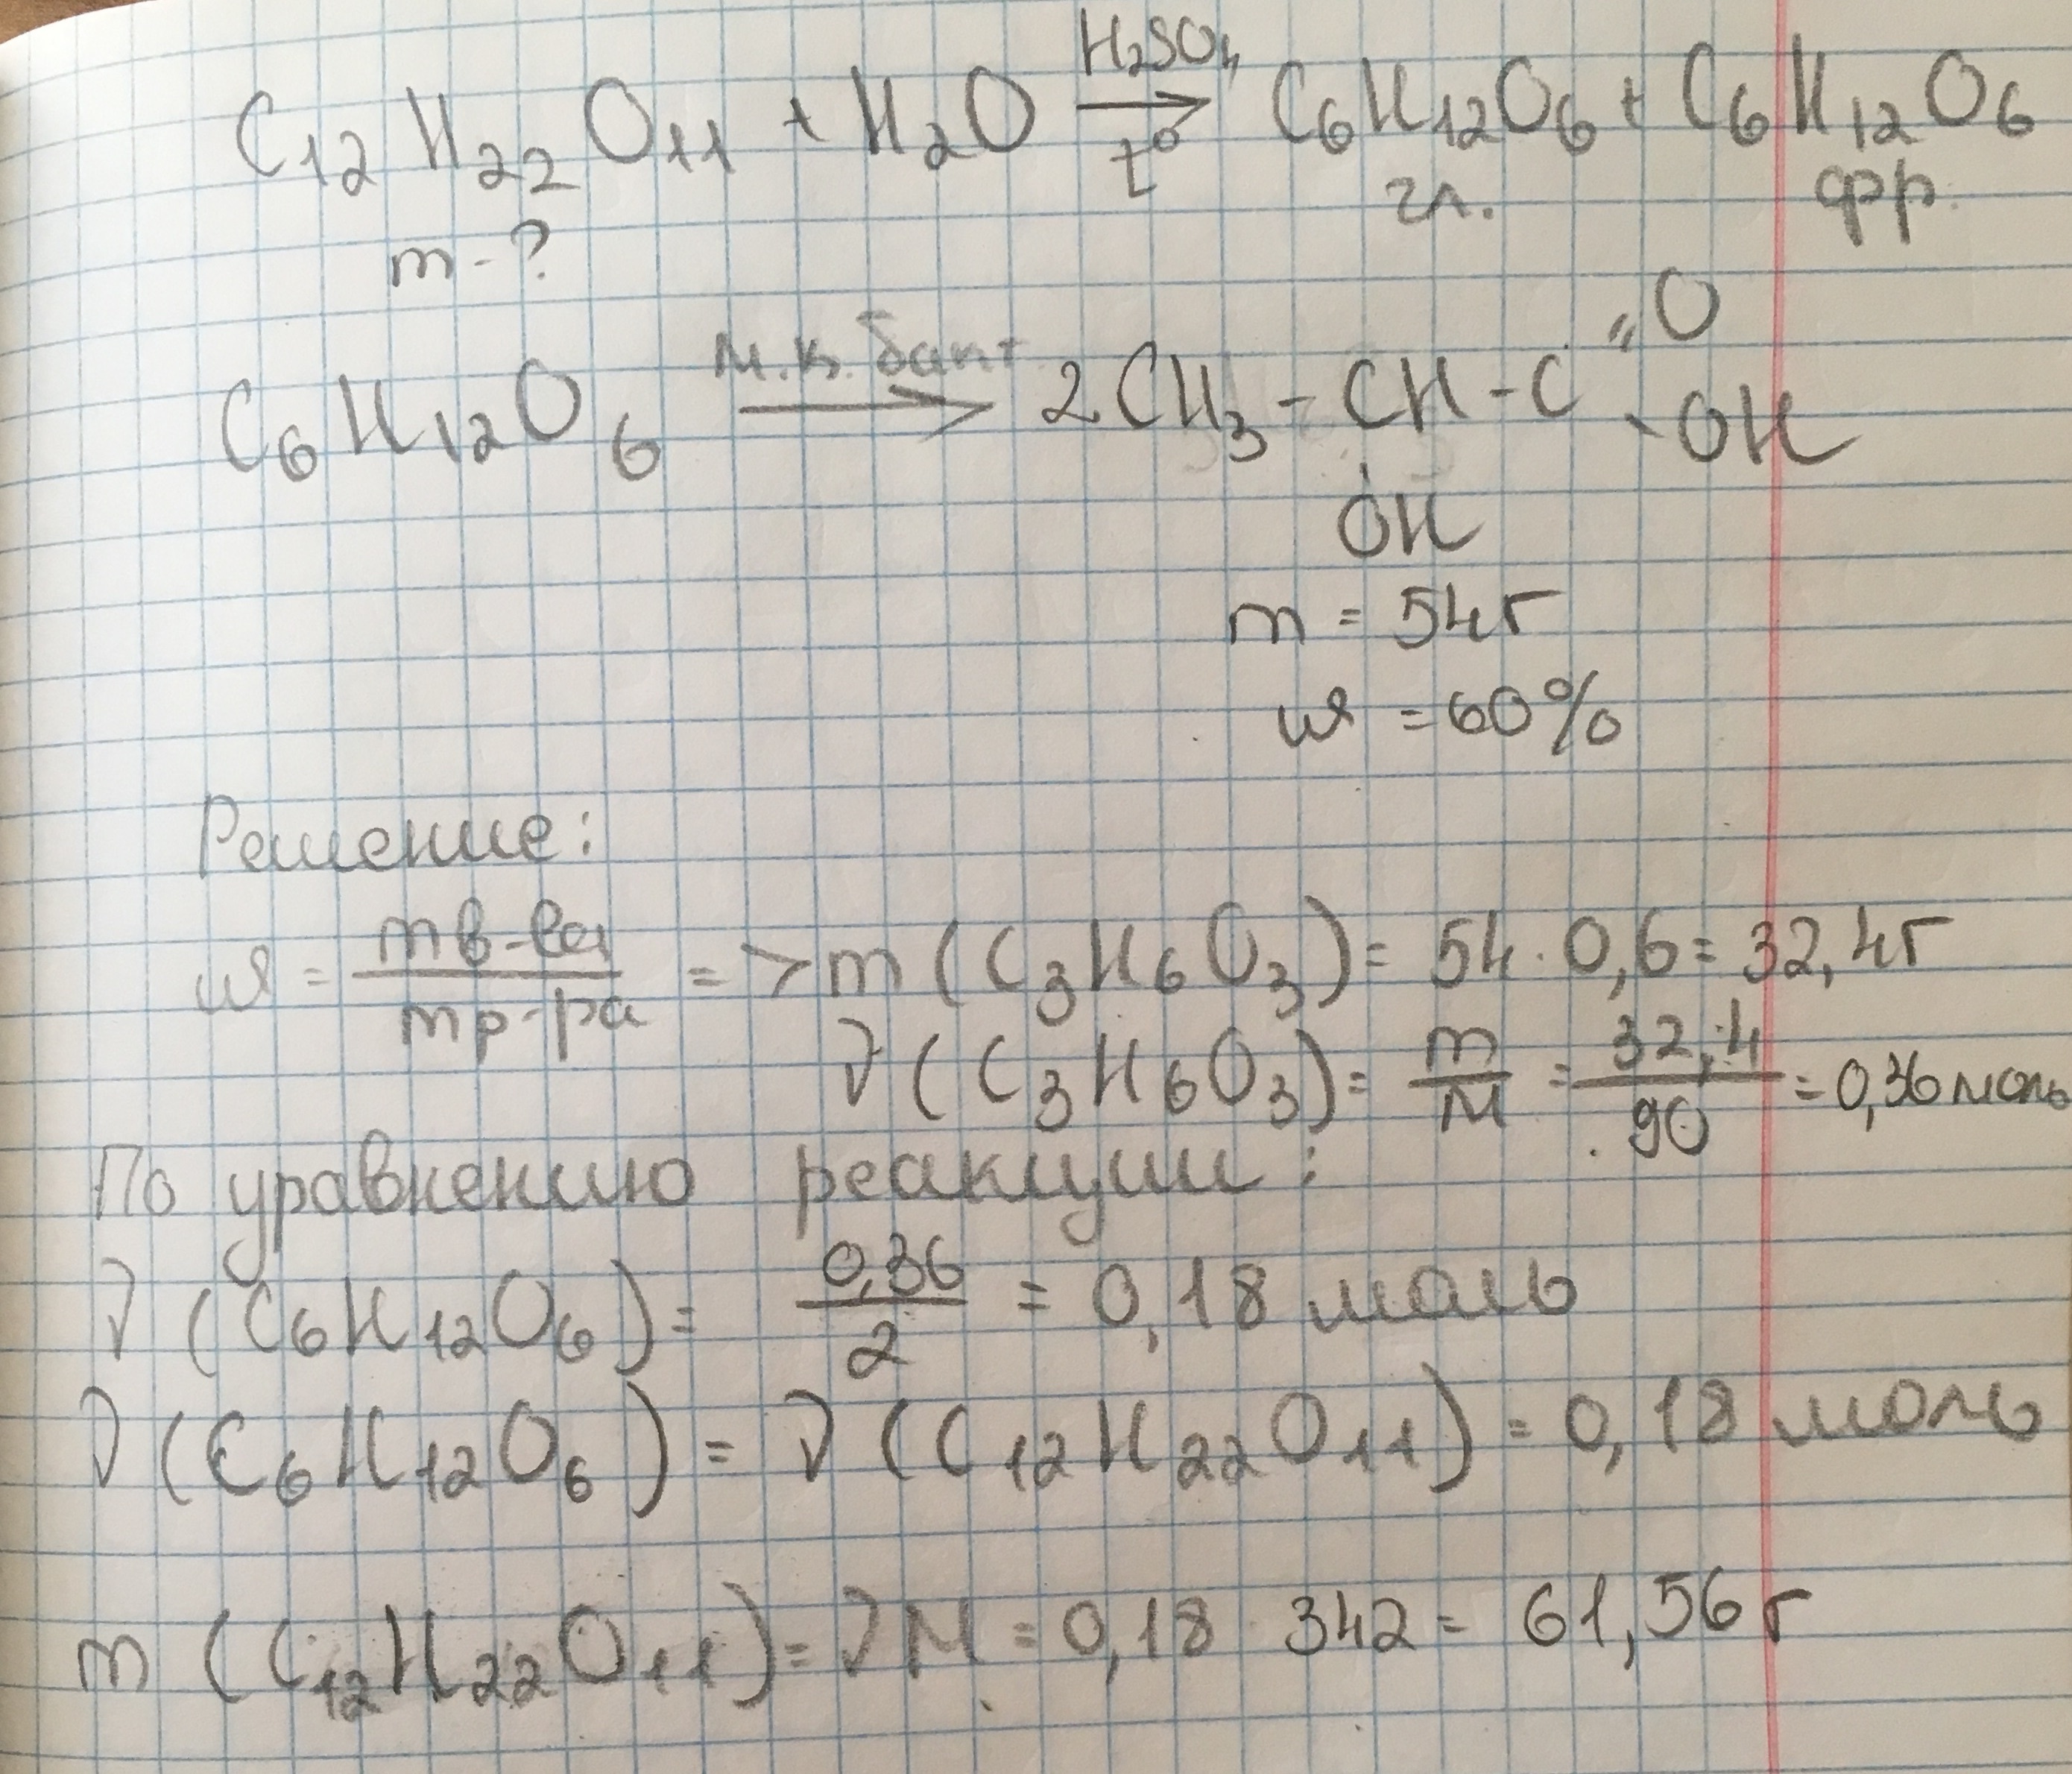 C₁₂H₂₂O₁₁ + H₂O H₂SO₄ → t° C₆H₁₂O₆ + C₆H₁₂O₆
m-? гл. фр.
C₆H₁₂O₆ м.к. бакт. → 2CH₃-CH-C =O -OH
OH
m = 54г
ω = 60%
Решение:
ω = m в-ва / m р-ра => m (C₃H₆O₃) = 54 · 0,6 = 32,4г
ν (C₃H₆O₃) = m/M = 32,4/90 = 0,36 моль
По уравнению реакции:
ν (C₆H₁₂O₆) = 0,36/2 = 0,18 моль
ν (C₆H₁₂O₆) = ν (C₁₂H₂₂O₁₁) = 0,18 моль
m (C₁₂H₂₂O₁₁) = νM = 0,18 · 342 = 61,56 г